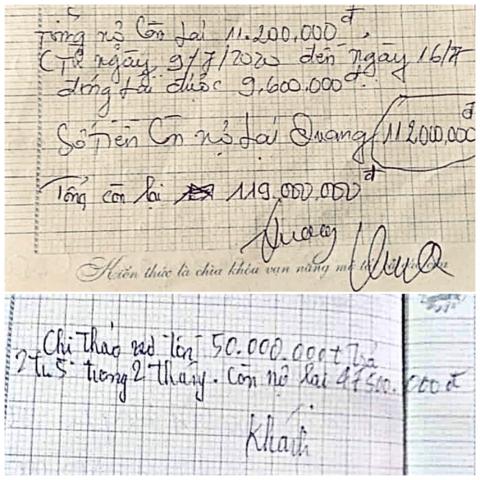 Tổng nợ Còn Lãi 11.200.000đ,
(Từ ngày 9/7/2020 đến ngày 16/7
đóng Lãi được 9.600.000đ
Số Tiền Còn nợ Lại Quang 112000,000đ
Tổng còn lại 119,000,000đ
Quang
Kiến thức là chìa khóa vạn năng mở
Chị Thảo nợ tôi 50.000.000t trả
2tr5 trong 2 tháng. Còn nợ lại 47500.000đ
Khách